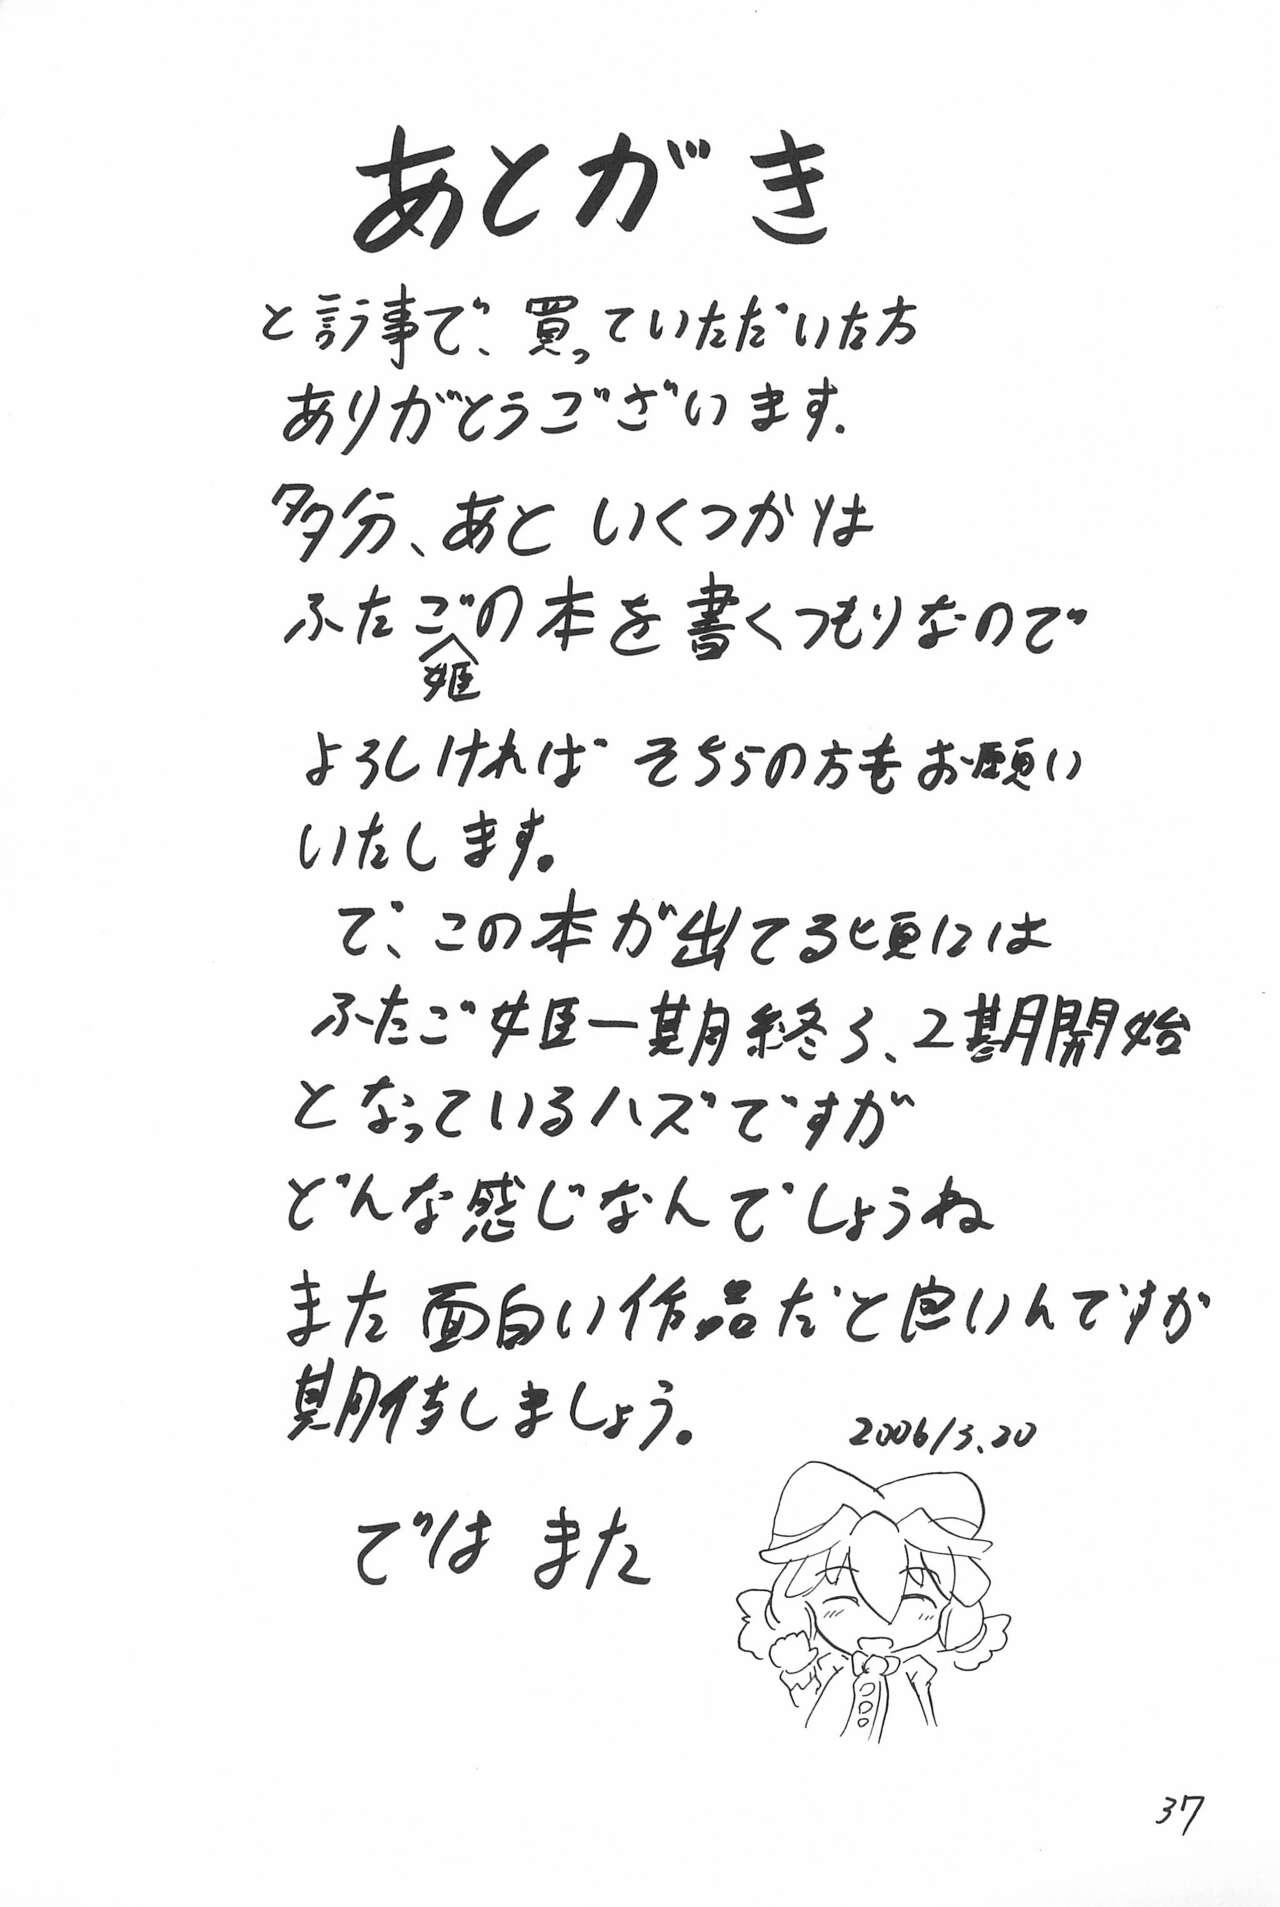 あとがき
と言う事で、買っていただいた方
ありがとうございます.
多分、あと いくつかは
ふたごの本を書くつもりなので
姫
よろしければ そちらの方もお願い
いたします。
で、この本が出てる頃には
ふたご姫一期終了、2期開始
となっているハズですが
どんな感じなんでしょうね
また面白い作品だと良いんですが
期待しましょう。
2006/3.20
では また
37